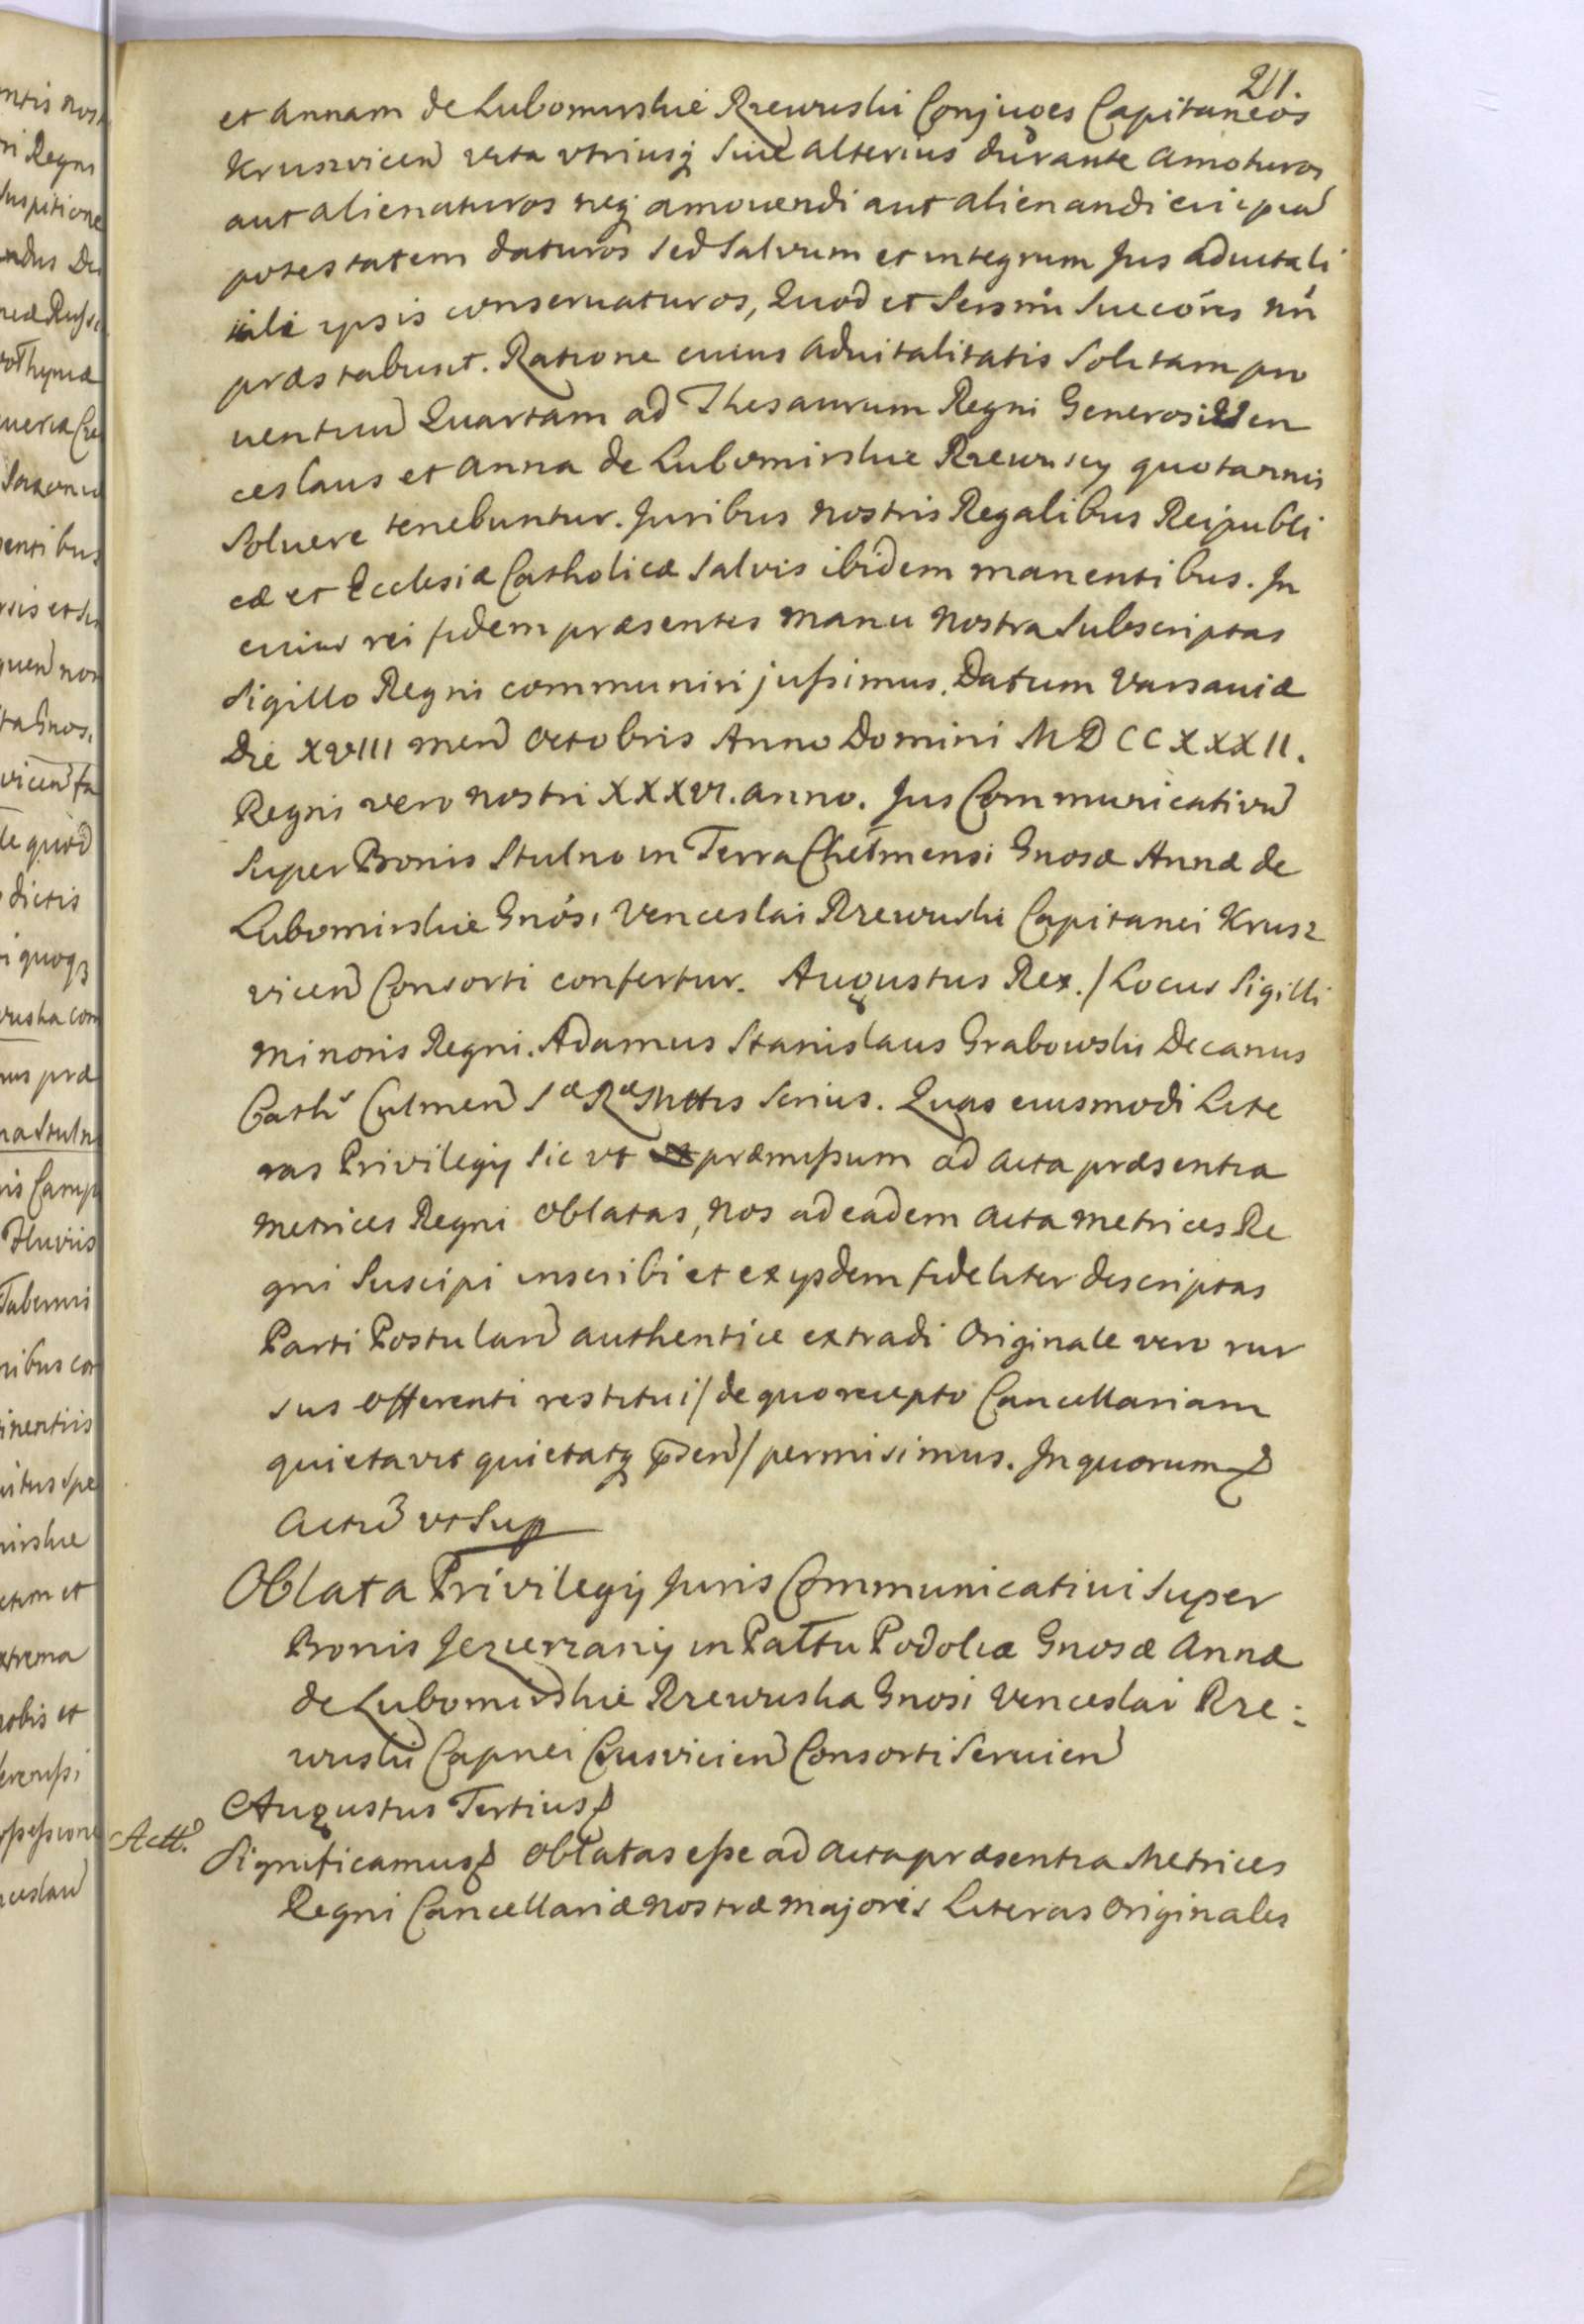 211.
et Annam de Lubomirskie Rzewuski Conjuges Capitaneos
Kruszvicen vita vtriusq; siue alterius durante amoturos
aut alienaturos neq; amouendi aut alienandi cuipiam
potestatem daturos sed salvum et integrum Jus aduitali
ipsis conseruaturos, Quod et Sersmi Succóres nri
præstabunt. Ratione cuius aduitalitatis solitam pro
uentuum Quartam ad Thesaurum Regni Generosi Ven
ceslaus et Anna de Lubomirskie Rzewuscy quotannis
soluere tenebuntur. Juribus nostris Regalibus Reipubli
cæ et Ecclesiæ Catholicæ salvis ibidem manentibus. In
cuius rei fidem præsentes manu nostra subscriptas
Sigillo Regni communiri jussimus. Datum Varsaviæ
Die XVIII men Octobris Anno Domini MDCCXXXII.
Regni vero nostri XXXVI. anno. Jus Communicativum
super Bonis Stulno in Terra Chełmensi Gnosæ Annæ de
Lubomirskie Gnósi Venceslai Rzewuski Capitanei Krusz
vicen Consorti confertur. Augustus Rex. / Locus Sigilli
minoris Regni. Adamus Stanislaus Grabowski Decanus
Cathr Culmen Sæ Ræ Mttis Scrius. Quas eiusmodi Lite
ras Privilegij sic vt præmissum ad acta præsentia
metrices Regni oblatas, nos ad eadem acta metrices Re
gni suscipi inscribi et ex ijsdem fideliter descriptas
Parti Postulan authentice extradi Originale vero rur
sus offerenti restitui / de quo recepto Cancellariam
quietavit quietatq; psen / permisimus. In quorum
Actum vt Sup
Oblata Privilegij Juris Communicativi super
Bonis Jezierzany in Pałttu Podoliæ Gnosæ Annæ
de Lubomirskie Rzewuska Gnosi Venceslai Rze:
wuski Capnei Crusvicien Consorti Seruien
Augustus Tertius
Actt.
Significamus Oblatas esse ad acta præsentia Metrices
Regni Cancellariæ nostræ majoris Literas Originales